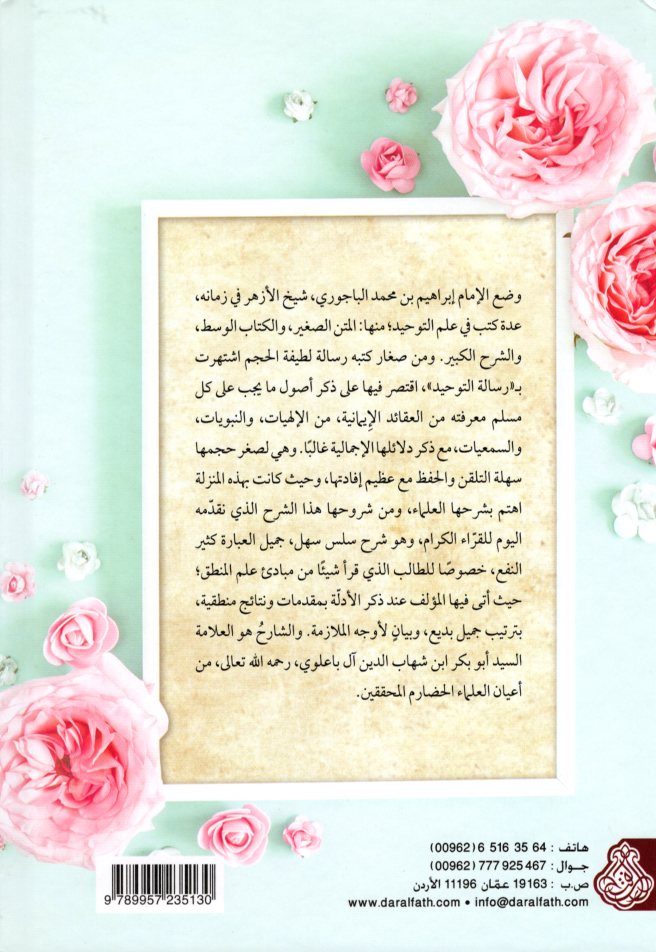 وضع الإمام إبراهيم بن محمد الباجوري، شيخ الأزهر في زمانه،
عدة كتب في علم التوحيد؛ منها: المتن الصغير، والكتاب الوسط،
والشرح الكبير. ومن صغار كتبه رسالة لطيفة الحجم اشتهرت
بـ«رسالة التوحيد»، اقتصر فيها على ذكر أصول ما يجب على كل
مسلم معرفته من العقائد الإيمانية، من الإلهيات، والنبويات،
والسمعيات، مع ذكر دلائلها الإجمالية غالبًا. وهي لصغر حجمها
سهلة التلقن والحفظ مع عظيم إفادتها، وحيث كانت بهذه المنزلة
اهتم بشرحها العلماء، ومن شروحها هذا الشرح الذي نقدّمه
اليوم للقرّاء الكرام، وهو شرح سلس سهل، جميل العبارة كثير
النفع، خصوصًا للطالب الذي قرأ شيئًا من مبادئ علم المنطق؛
حيث أتى فيها المؤلف عند ذكر الأدلّة بمقدمات ونتائج منطقية،
بترتيب جميل بديع، وبيانٍ لأوجه الملازمة. والشارحُ هو العلامة
السيد أبو بكر ابن شهاب الدين آل باعلوي، رحمه الله تعالى، من
أعيان العلماء الحضارم المحققين.
هاتف : 64 35 516 6 (00962)
جـوال : 467 925 777 (00962)
ص.ب : 19163 عمّان 11196 الأردن
www.daralfath.com • info@daralfath.com
9 789957 235130